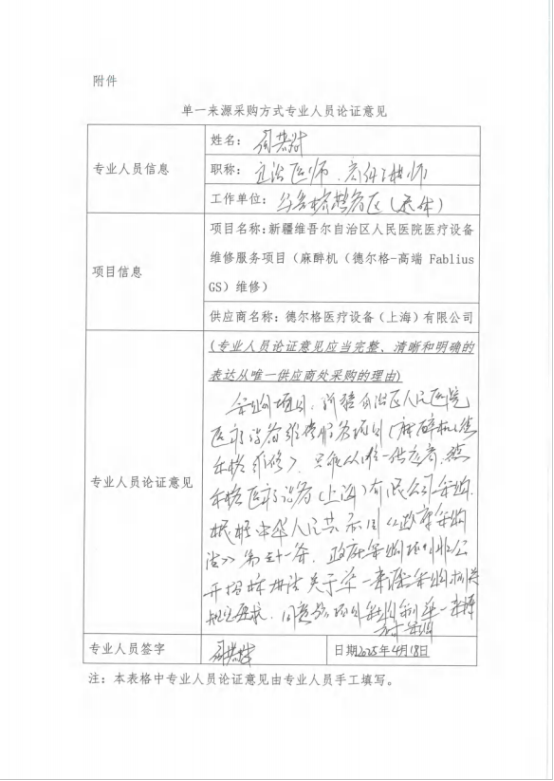 附件
单一来源采购方式专业人员论证意见
专业人员信息
姓名：
职称：主治医师、高级工程师
工作单位：乌鲁木齐 区（退休）
项目信息
项目名称：新疆维吾尔自治区人民医院医疗设备
维修服务项目（麻醉机（德尔格-高端 Fablius
GS）维修）
供应商名称：德尔格医疗设备（上海）有限公司
专业人员论证意见
（专业人员论证意见应当完整、清晰和明确的
表达从唯一供应商处采购的理由）
采购项目：新疆自治区人民医院
医疗设备维修服务项目（麻醉机（德
尔格）维修），只能从唯一供应商，德
尔格医疗设备（上海）有限公司采购，
根据中华人民共和国《政府采购
法》第三十一条，政府采购 非公
开招标 法关于单一来源采购相关
规定要求，同意该项目采购 单一来源
采购
专业人员签字
日期2025年4月18日
注：本表格中专业人员论证意见由专业人员手工填写。